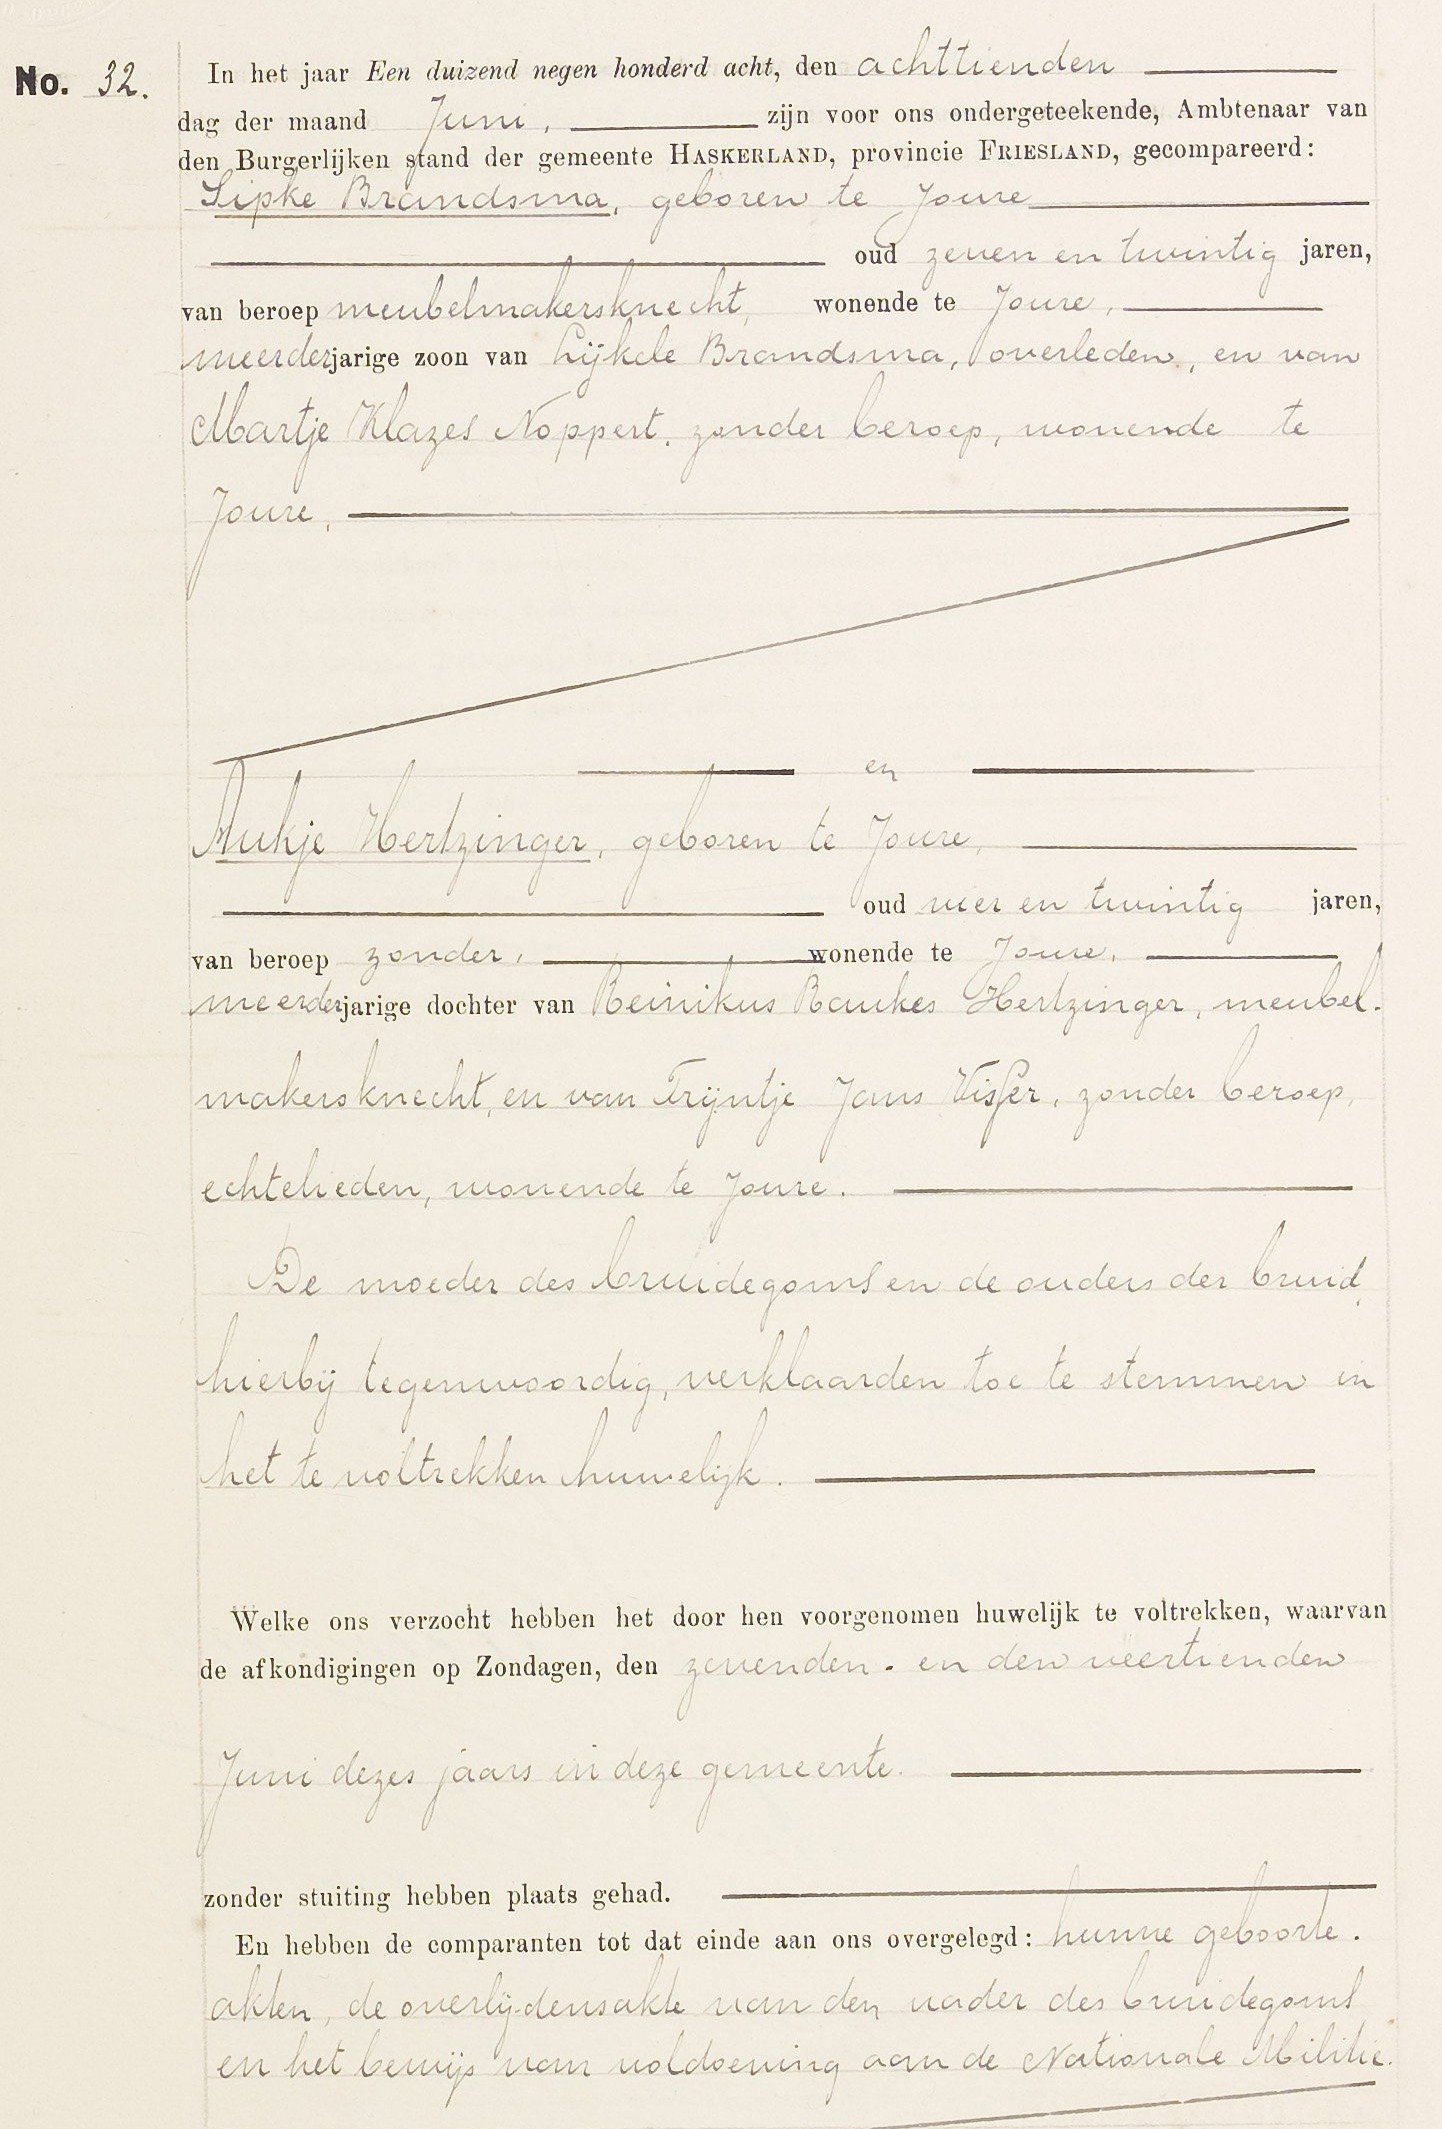 No. 32.
In het jaar Een duizend negen honderd acht, den achttienden
dag der maand Juni, zijn voor ons ondergeteekende, Ambtenaar van
den Burgerlijken stand der gemeente HASKERLAND, provincie FRIESLAND, gecompareerd:
Sipke Brandsma, geboren te Joure
oud zeven en twintig jaren,
van beroep meubelmakersknecht, wonende te Joure,
meerderjarige zoon van Lijkele Brandsma, overleden, en van
Martje Klazes Noppert, zonder beroep, wonende te
Joure,
en
Aukje Hertzinger, geboren te Joure,
oud vier en twintig jaren,
van beroep zonder, wonende te Joure,
meerderjarige dochter van Reinikus Baukes Hertzinger, meubel-
makersknecht, en van Trijntje Jans Visser, zonder beroep,
echtelieden, wonende te Joure.
De moeder des bruidegoms en de ouders der bruid,
hierbij tegenwoordig, verklaarden toe te stemmen in
het te voltrekken huwelijk.
Welke ons verzocht hebben het door hen voorgenomen huwelijk te voltrekken, waarvan
de afkondigingen op Zondagen, den zevenden - en den veertienden
Juni dezes jaars in deze gemeente.
zonder stuiting hebben plaats gehad.
En hebben de comparanten tot dat einde aan ons overgelegd: hunne geboorte-
akten, de overlijdensakte van den vader des bruidegoms
en het bewijs van voldoening aan de Nationale Militie.